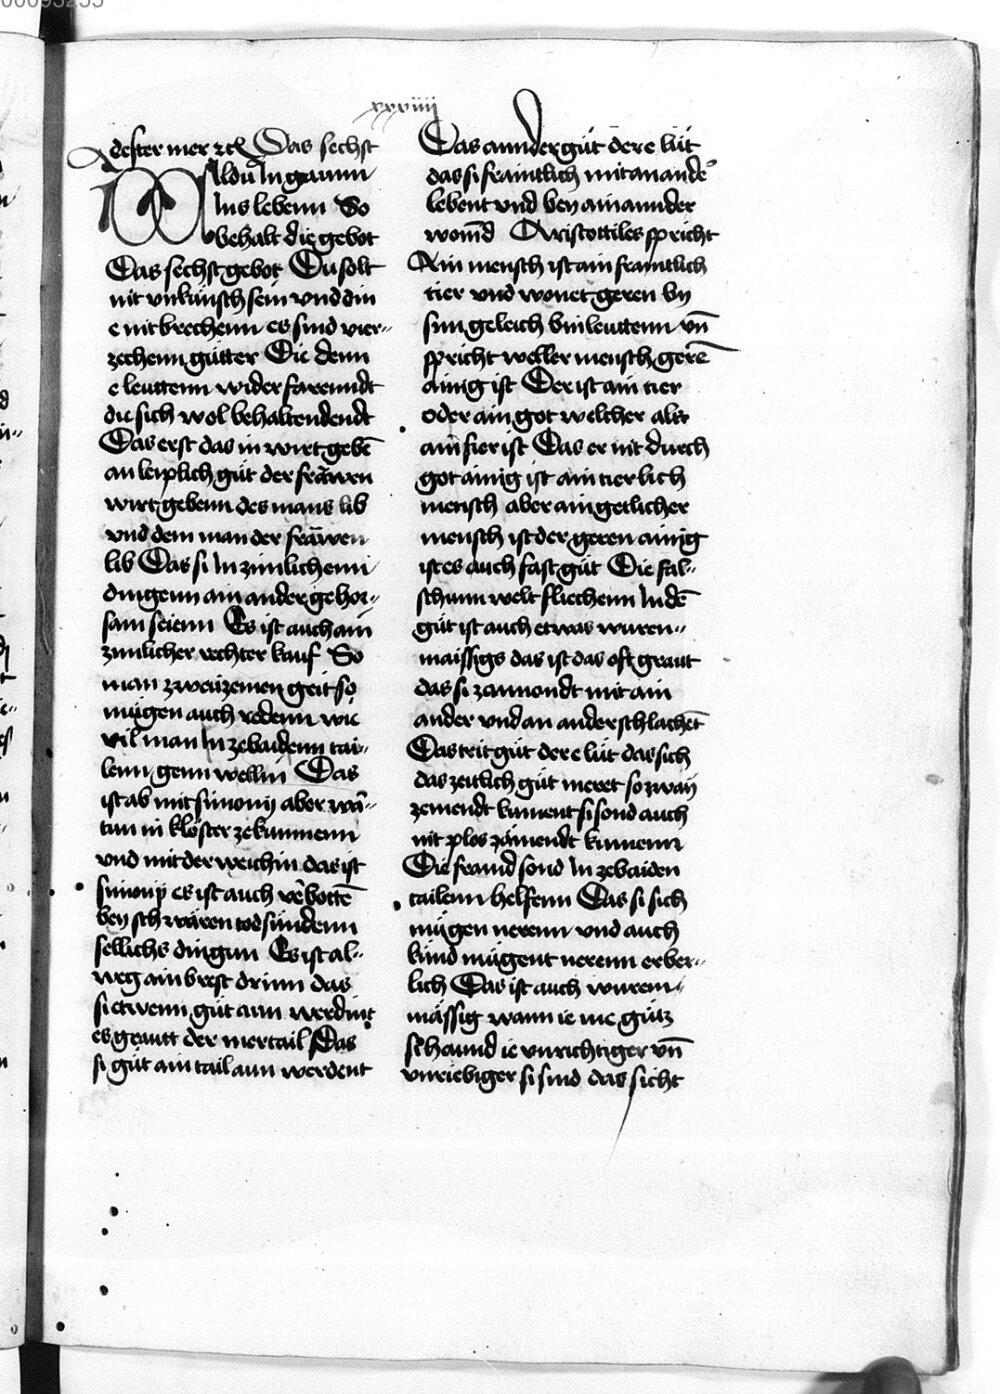 00095255
xxxviiij
dester mer ꝛcͣ Das sechst
Wildu In gaunn
lins lebenn So
behalt die gebot
Das sechst gebot Du solt
nit vnkünsch sein vnd din
e nit brechenn es sind vier-
zechenn gütter Die denn
e leuttenn wider farenndt
die sich wol behaltendendt
Das erst das in wirt gebē
an leiplich güt der frawen
wirt gebenn des mans lib
vnd dem man der frawen
lib Das si In zimlichenn
dingenn ain ander gehor-
sam seienn Es ist auch ain
zimlicher rechter kauf So
man zwen zemen geit so
mügen auch redenn wie
vil man In zebaidenn tai-
lenn genn wellin Das
ist ab mit simony aber wā-
tun in klöster zekummenn
vnd mit der weichin das ist
simony es ist auch v̄bottē
bey schwären todsündenn
sellichs dingun Es ist al-
weg ain brest drinn das
si etwenn güt ann werdint
es geratt der mertail Das
si güt ain tail ann werdent
Das annder güt der e lüt
das si fraintlich mit anandē
lebent vnd bey ainannder
womd Aristottiles spricht
Ain mensch ist ain fraintlich
tier vnd wonet geren by
sim geleich bin leuttenn vn̄
spricht weller mensch gerē
ainig ist Der ist ain tier
oder ain got welcher alſt
ain tier ist Das er nit durch
got ainig ist ain tierlich
mensch aber ain getlicher
mensch ist der geren ainig
ist es auch fast güt Die fal-
schunn welt fliechenn In dē
güt ist auch etwas wuren-
maissigs das ist das oft geraut
das si zannondt mit ain
ander vnd an ander schlachēt
Das trit güt der e lüt das sich
das zeitlich güt meret so zway
zemendt kument si sond auch
nit plos zämendt kumenn
Die fraind sond In zebaiden
tailenn helfenn Das si sich
mügen nerenn vnd auch
kind mügent nerenn erber-
lich Das ist auch wurem-
mässig wann ie me gütz
si haund ie vnrichtiger vn̄
vnriebiger si sind das sicht